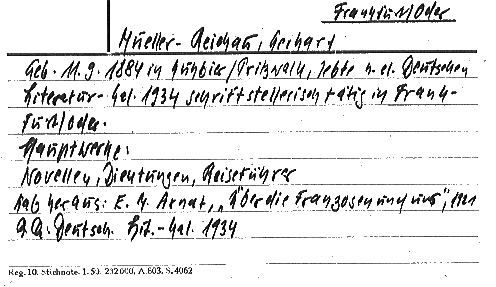 Frankfurt/Oder
Mueller-Reichau, Gerhart
Geb. 11.9.1884 in Kuhbier/Pritzwalk, lebte n. d. Deutschen
Literatur-Kal. 1934 schriftstellerisch tätig in Frank-
furt/Oder.
Hauptwerke:
Novellen, Dichtungen, Reiseführer
Gab heraus: E. M. Arndt, „Über die Franzosen und uns", 1921
Deutsch. Lit.-Kal. 1934
Reg. 10. Stichnote. 1. 50. 232 000, A. 603, S. 4062